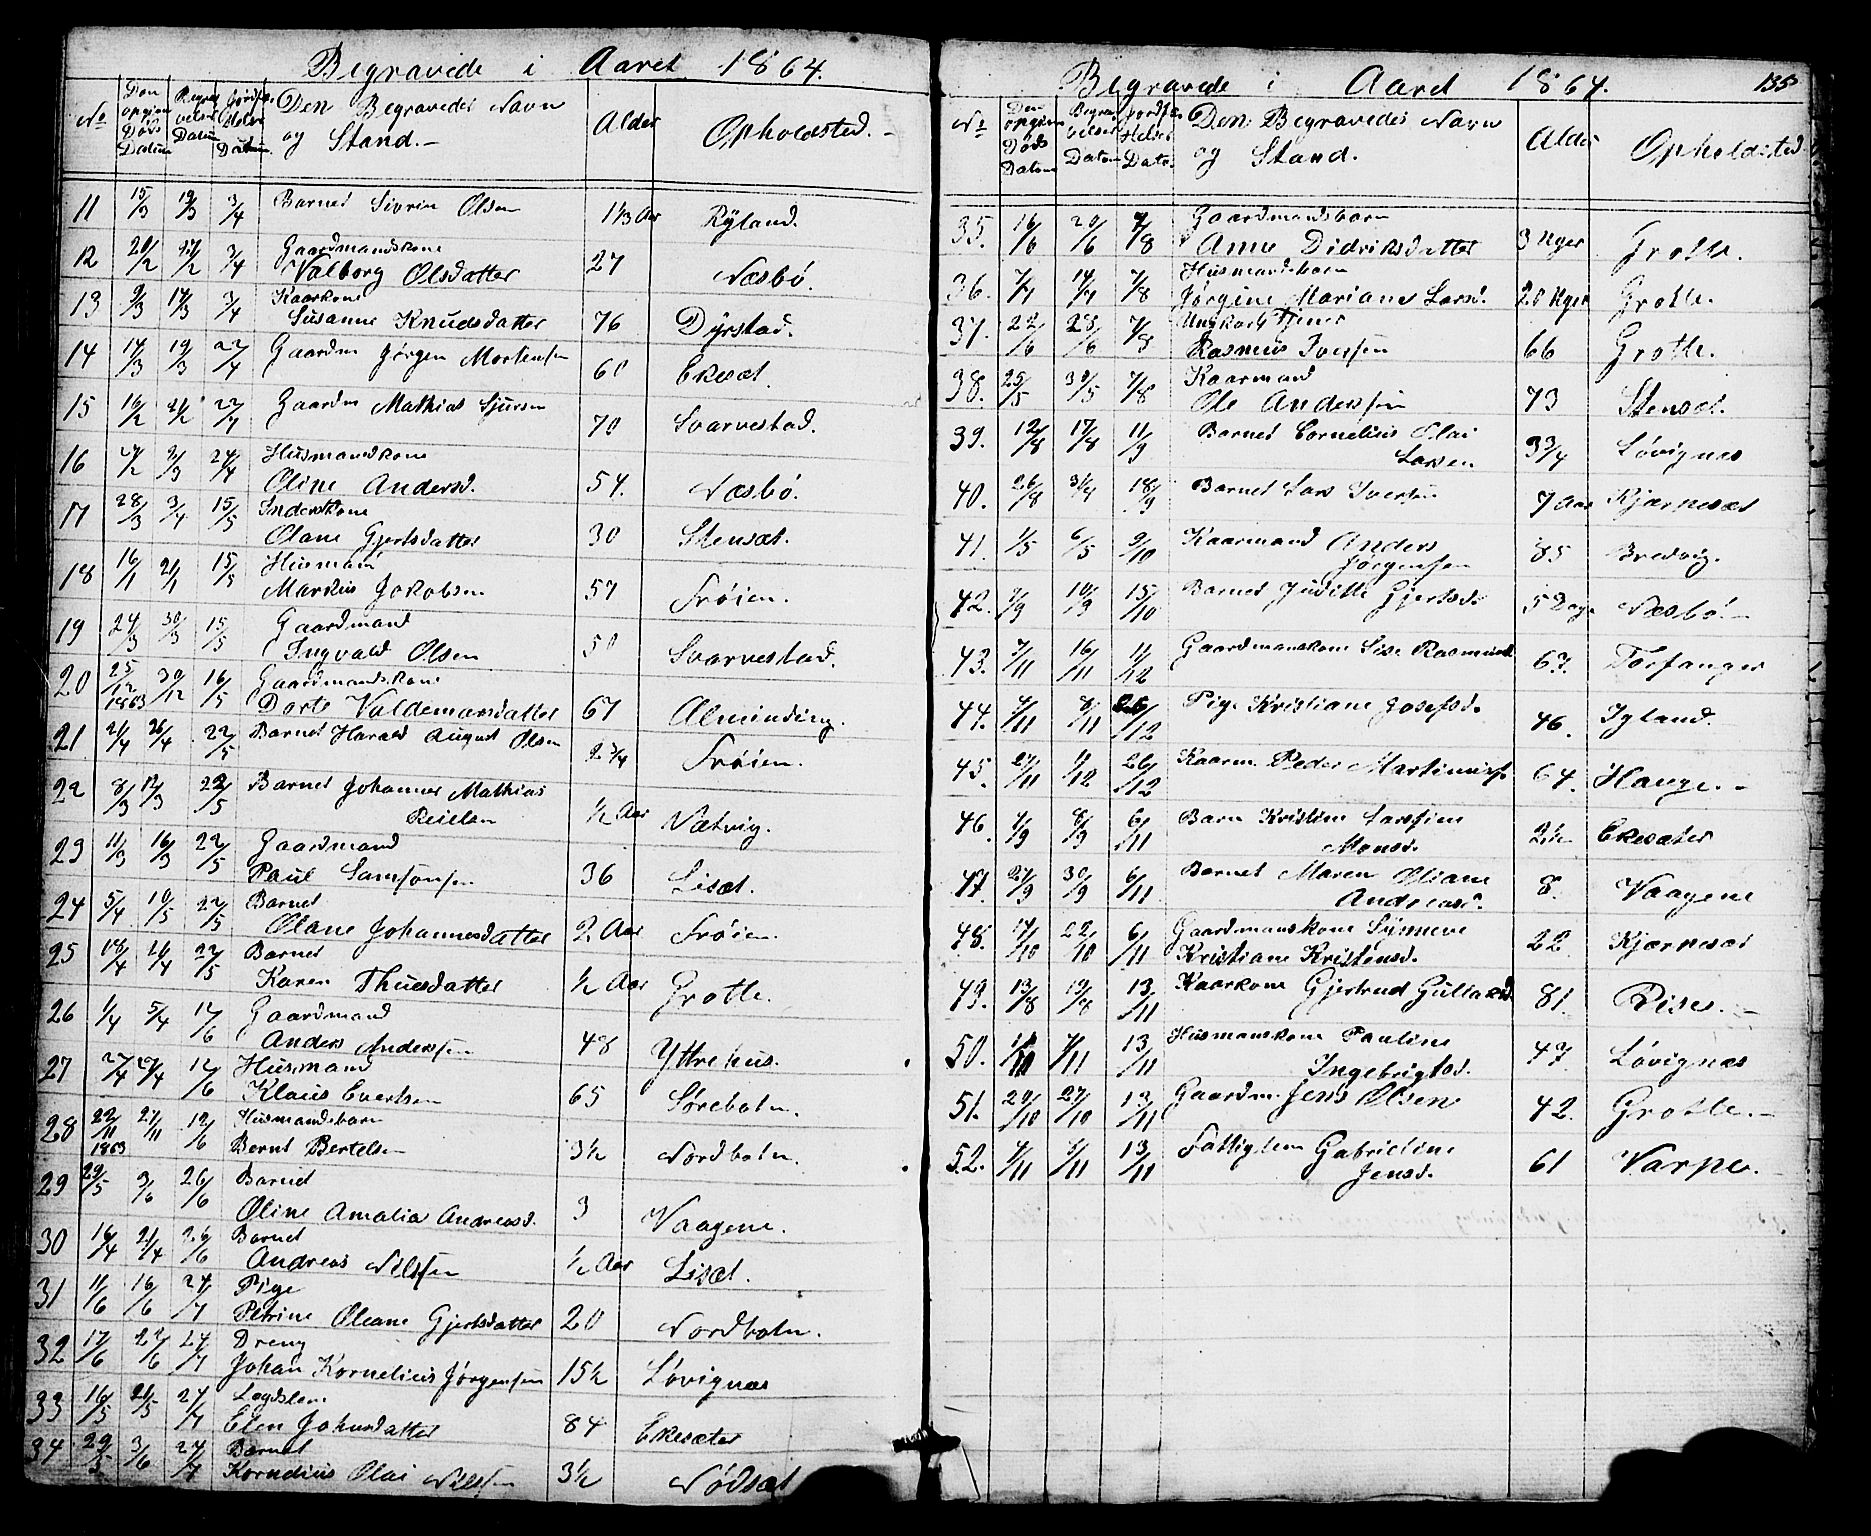 Begravede i Aaret 1864.
No Den opgivne Döds Datum Begravelses Datum Jordfæstelses Datum Den Begravedes Navn og Stand. Alder Opholdsted.
11 15/3 19/3 3/4 Barnet Sivrin Olsen 1 1/3 Aar Ryland.
12 20/2 27/2 3/4 Gaardmandskone
Valborg Olsdatter 27 Næsbö.
13 9/3 17/3 3/4 Kaarkone
Susanne Knudsdatter 76 Dyrstad.
14 14/3 19/3 22/4 Gaardm Jörgen Mortensen 60 Ekesæt.
15 16/2 21/2 22/4 Gaardm Mathias Sjursen 70 Svarvestad.
16 24/2 3/3 24/4 Husmandkone
Oline Andersd. 54. Næsbö.
17 28/3 3/4 15/5 Inderstkone
Olane Gjertsdatter 30 Stensæt.
18 16/1 21/1 15/5 Husman
Markus Jakobsen 57 Fröien.
19 24/3 30/3 15/5 Gaardmand
Ingvald Olsen 50 Svarvestad.
20 25/12 1863 30/12 16/5 Gaardmandskone
Dorte Valdemarsdatter 67 Alminding.
21 21/4 26/4 22/5 Barnet Harald August Olsen 2 3/4 Fröien.
22 8/3 12/3 22/5 Barnet Johannes Mathias
1/2 Aar Nætvig.
23 11/3 16/3 22/5 Gaardmand
Paul Samsonsen 36 Lisæt.
24 5/4 10/5 22/5 Barnet
Olane Johannesdatter 2 Aar Fröien.
25 10/4 16/4 22/5 Barnet
Karen Thuesdatter 1/2 Aar Grotle.
26 1/4 5/4 12/6 Gaardmand
Anders Anderssen 48 Yttrehus.
27 22/4 27/4 12/6 Husmand
Klaus Evertsen 65 Sörebotn.
28 22/11 1863 27/11 12/6 Husmandsbarn
Bernt Bertelsen 3 1/2 Nordbotn.
29 29/5 3/6 26/6 Barnet
Oline Amalia Andreasd. 3 Vaagene.
30 16/4 21/4 26/6 Barnet
Andreas Nilssen 1/2 Aar Lisæt.
31 11/6 16/6 24/7 Pige
Petrine Oleane Gjertsdatter 20 Nordbotn.
32 17/6 22/6 24/7 Dreng
Johan Kornelius Jörgensen 15 1/2 Lövignæs
33 16/5 21/5 24/7 Lægdslem
Elen Johnsdatter 84 Ekesæter
34 29/5 3/6 24/7 Barnet
Kornelius Olai Nilssen 3 1/2 Nödsæt
Begravede i Aaret 1864. 135
No Den opgivne Döds Datum Begravelses Datum Jordfæstelses Dato. Den Begravedes Navn og Stand. Alder Opholdsted.
35. 16/6 20/6 7/8 Gaardmandsbarn
Anne Didriksdatter 3 Uger Grotle.
36. 7/7 14/7 7/8 Husmandsbarn
Jörgine Mariane Larsd. 20 Uger Grotle.
37. 22/6 28/6 7/8 Ungkarl Tjener
Rasmus Iversen 66 Grotle.
38. 25/5 30/5 7/8 Kaarmand
Ole Anderssen 73 Stensæt.
39. 12/8 17/8 11/9 Barnet Cornelius Olai
Larsen 3 3/4 Lövignæs
40. 26/8 31/8 18/9 Barnet Lars Iversen 7 Aar Kjærnesæt
41. 1/5 6/5 2/10 Kaarmand Anders
Jörgensen 85 Bredvig.
42. 7/9 10/9 15/10 Barnet Juditte Gjertsd. 5 Dage Næsbö.
43. 7/11 16/11 11/12 Gaardmanskone Sise Rasmusd. 63. Torfanger
44. 4/11 8/11 26/12 Pige Kristiane Josefsd. 46. Igland.
45. 27/11 1/12 26/12 Kaarm. Peder Martinus 64. Hauge.
46. 4/9 8/9 6/11 Barn Kristine
Monsd. 2 1/2 Ekesæter
47. 27/9 30/9 6/11 Barnet Maren Oliane
Andreasd. 8. Vaagene
48. 17/10 22/10 6/11 Gaardmanskone Synneve
Kristiane Kristensd. 22 Kjærnesæt
49. 13/8 19/8 13/11 Kaarkone Gjertrud Gullaksd. 81. Rise.
50. 4/11 13/11 Husmanskone Pauline
Ingebrigtsd. 47. Lövignæs
51. 22/10 27/10 13/11 Gaardm. Jens Olsen 42. Grotle.
52. 4/11 8/11 13/11 Fattiglem Gabrieline
Jensd. 61 Varpe.